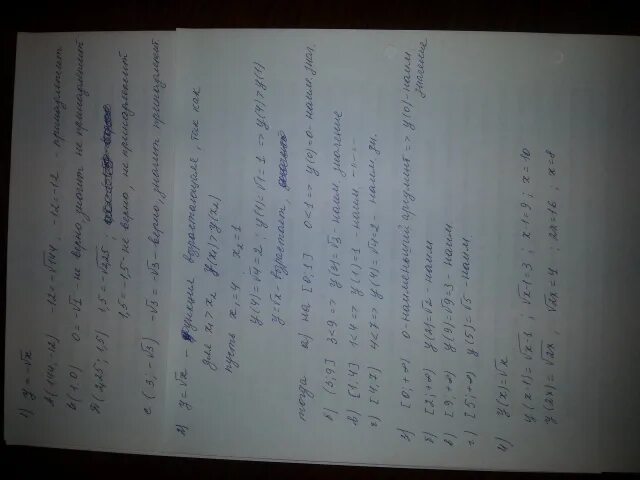 1) y = -√x
A(144, -12) -12 = -√144, -12 = -12 - принадлежит
B(1 0) 0 = -√1 - не верно, значит не принадлежит
(2,25; 1,5) 1,5 = -√2,25
1,5 = -1,5 - не верно, не принадлежит
C (3; -√3) -√3 = -√3 - верно, значит принадлежит
2) y = √x - функция возрастающая, так как
для x₁ > x₂ y(x₁) > y(x₂)
пусть x₁ = 4 x₂ = 1
y(4) = √4 = 2; y(1) = √1 = 1 => y(4) > y(1)
y = √x - возрастает,
тогда а) на [0; 1] 0 < 1 => y(0) = 0 - наим. знач.
б) (3; 9] 3 < 9 => y(3) = √3 - наим. значение
в) [1. 4] 1 < 4 => y(1) = 1 - наим - " -
г) [4. 7) 4 < 7 => y(4) = √4 = 2 - наим. зн.
3) [0; +∞) 0 - наименьший аргумент => y(0) - наим значение
б) [2; +∞) y(2) = √2 - наим
в) [9; +∞) y(9) = √9 = 3 - наим
г) [5; +∞) y(5) = √5 - наим
4) y(x) = √x
y(x-1) = √x-1; √x-1 = 3; x-1 = 9; x = 10
y(2x) = √2x; √2x = 4; 2x = 16; x = 8